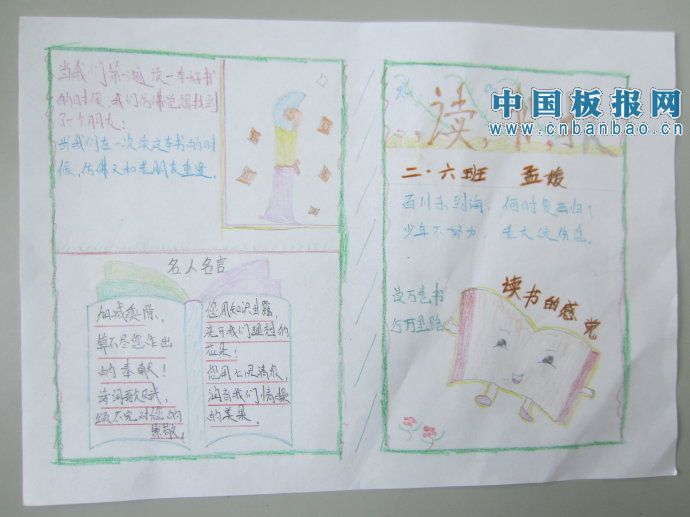 当我们第一遍读一本好书
的时候,我们仿佛觉得找到
了一个朋友;
当我们在一次读这本书的时
候,仿佛又和老朋友重逢
名人名言
加减乘除,
算不尽您作出
的奉献!
诗词歌赋,
颂不完对您的
崇敬。
您用知识甘露,
浇开我们理想的
花朵;
您用心灵清泉,
润育我们情操
的美果。
中国板报网
www.cnbanbao.cn
读
报
二·六班 孟媛
百川东到海,何时复西归;
少年不努力 老大徒伤悲
读万卷书
行万里路
读书的感觉